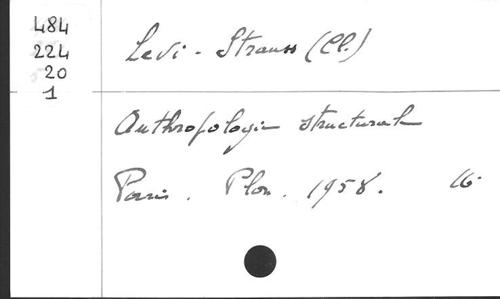 484
224
20
1
Levi - Strauss (Cl.)
Anthropologie structurale
Paris. Plon. 1958. 16.